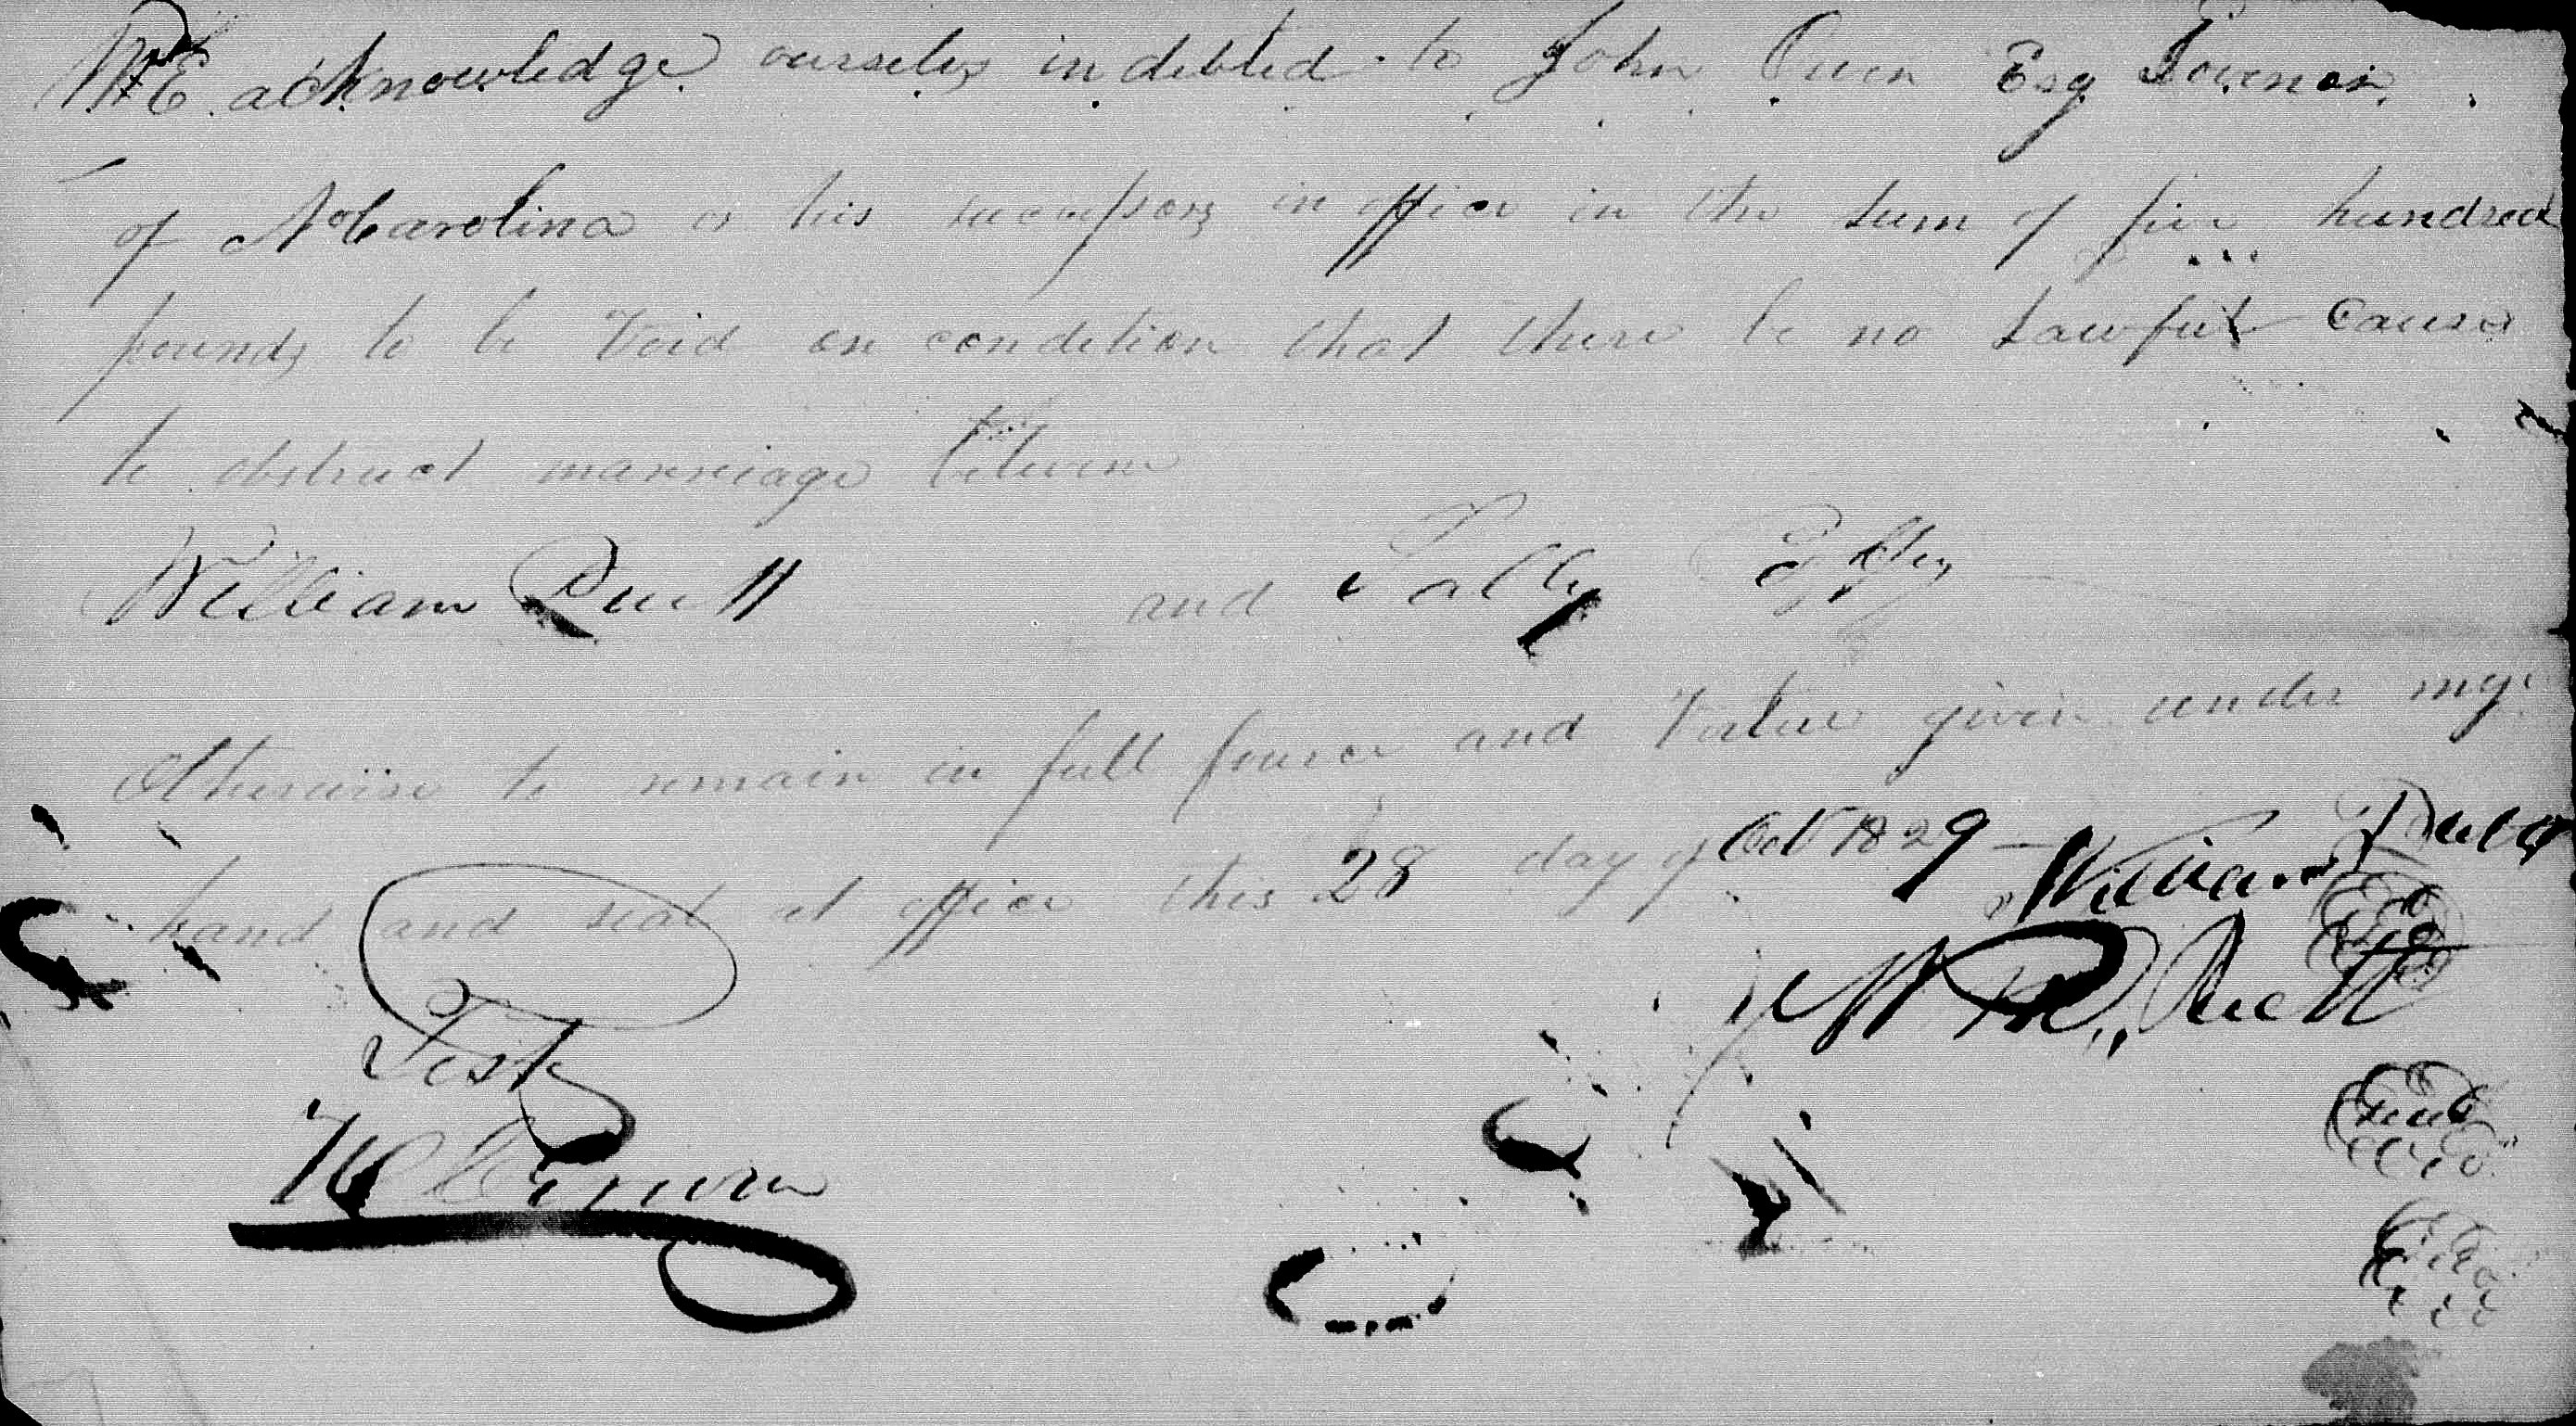 WE acknowledge ourselves indebted to John Owen Esq Govenor
of N Carolina or his successors in office in the sum of five hundred
pounds to be Void on condition that there be no Lawful Cause
to obstruct marriage between
William Puett and Sally
Otherwise to remain in full fource and Vertue given under my
hand and seal at office this 28 day of Oct 1829
William
Puett
Test